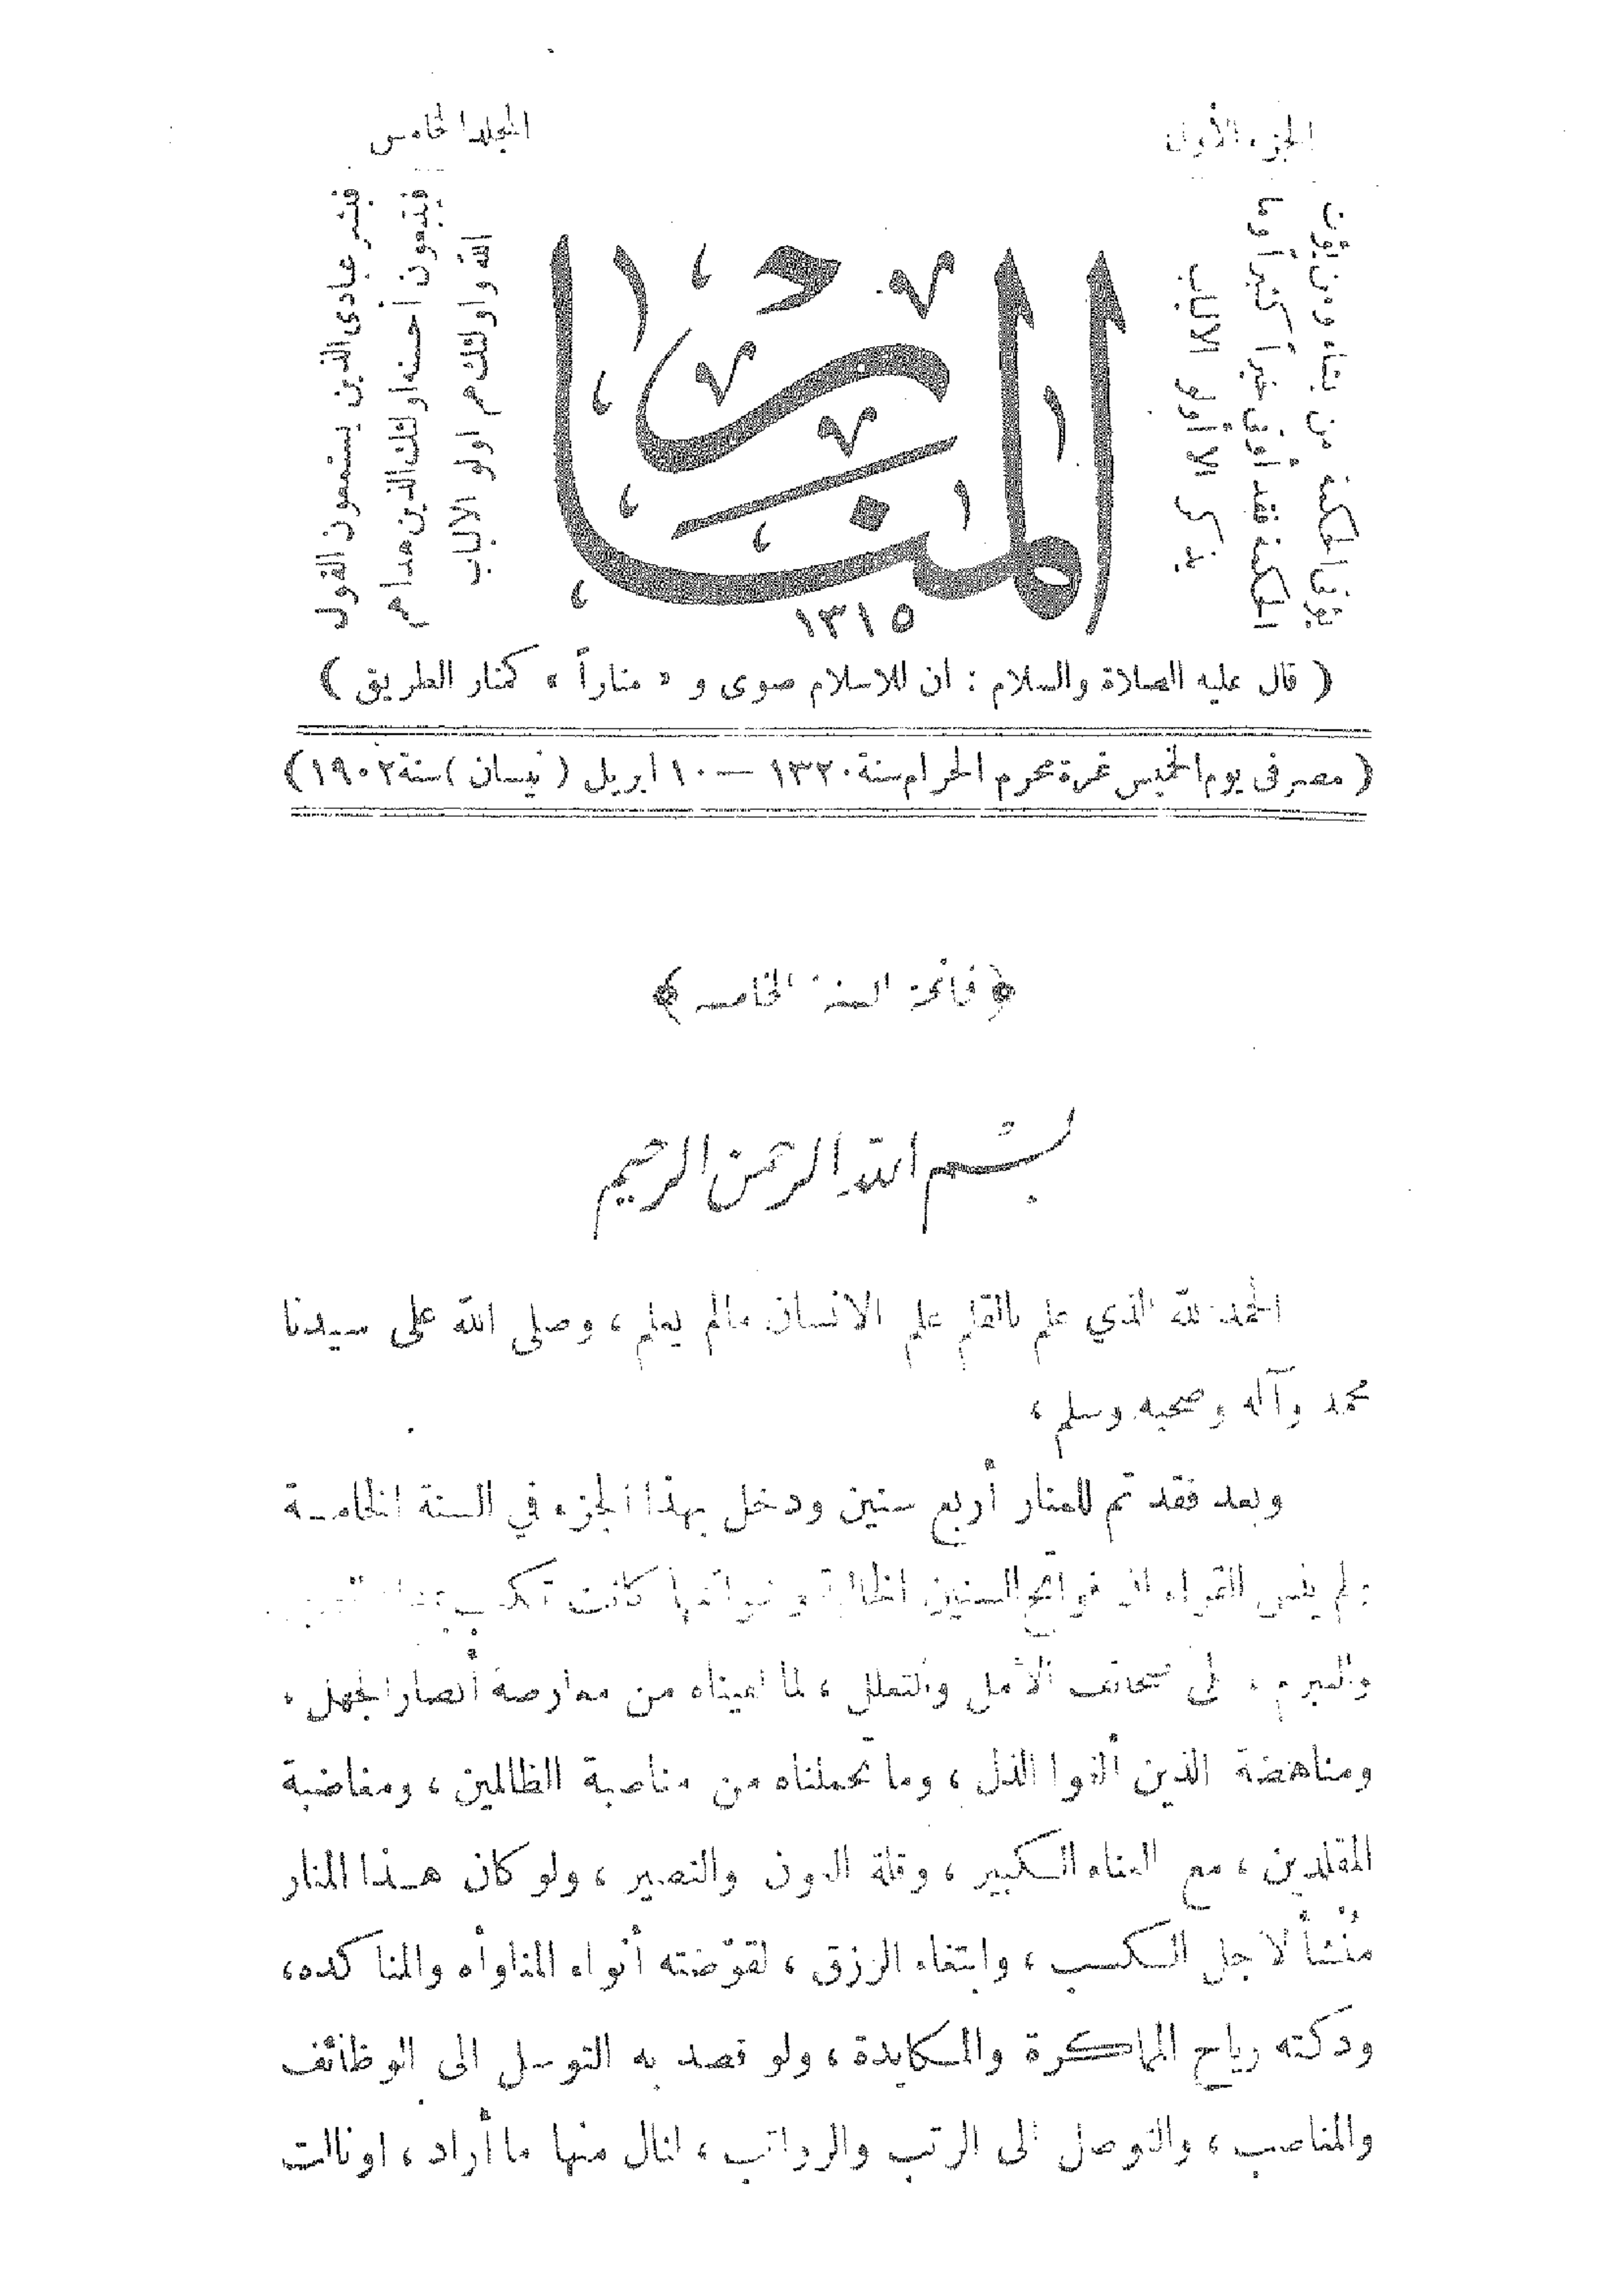 الجزء الأول
المجلد الخامس
يؤتى الحكمة من يشاء ومن يؤت
الحكمة فقد أوتي خيراً كثيراً وما
يذكر الا أولو الالباب
المنار
١٣١٥
فبشر عبادى الذين يستمعون القول
فيتبعون أحسنه اولئك الذين هداهم
الله واولئك هم اولو الالباب
( قال عليه الصلاة والسلام : ان للاسلام صوى و « مناراً » كمنار الطريق )
( مصر فى يوم الخميس غرة محرم الحرام سنة ١٣٢٠ — ١٠ ابريل ( نيسان ) سنة ١٩٠٢ )
﴿ فاتحة السنة الخامسة ﴾
بسم الله الرحمن الرحيم
الحمد لله الذي علم بالقلم علم الانسان مالم يعلم ، وصلى الله على سيدنا
محمد وآله وصحبه وسلم ،
وبعد فقد تم للمنار أربع سنين ودخل بهذا الجزء في السنة الخامسة
ولم ينس القراء ان فواتح السنين الخالية وخواتمها كانت تكتب
والتبرم ، الأمل والتعلل ، لما لقيناه من معارضة أنصار الجهل ،
ومناهضة الذين ألفوا الذل ، وما تحملناه من مناصبة الظالمين ، ومغاضبة
المقلدين ، مع العناء الكبير ، وقلة العون والنصير ، ولو كان هذا المنار
مُنْشأً لأجل الكسب ، وابتغاء الرزق ، لقوّضته أنواء المناوأه والمناكده،
ودكته رياح المماكرة والمكايدة ، ولو قصد به التوسل الى الوظائف
والمناصب ، والتوصل الى الرتب والرواتب ، لنال منها ما أراد ، او نالت